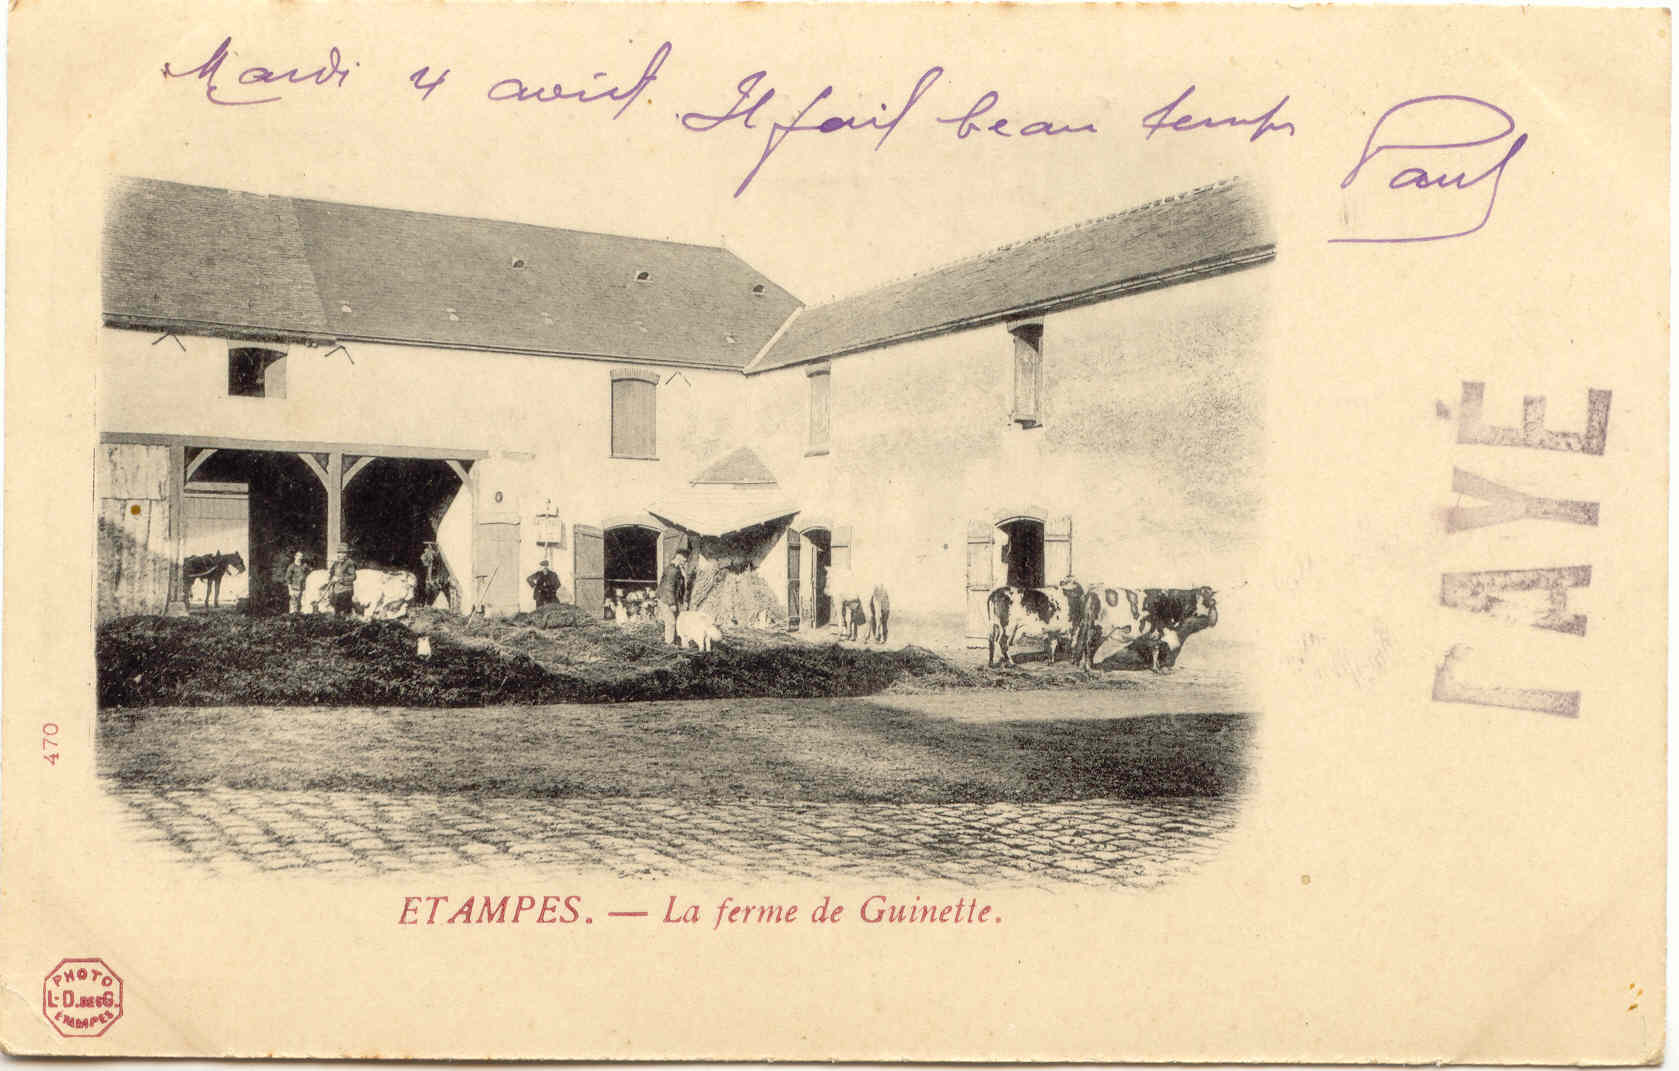 Mardi 4 avril Il fait beau temps
Paul
PAYÉ
470
ETAMPES. — La ferme de Guinette.
PHOTO
L. D. DES G.
ETAMPES